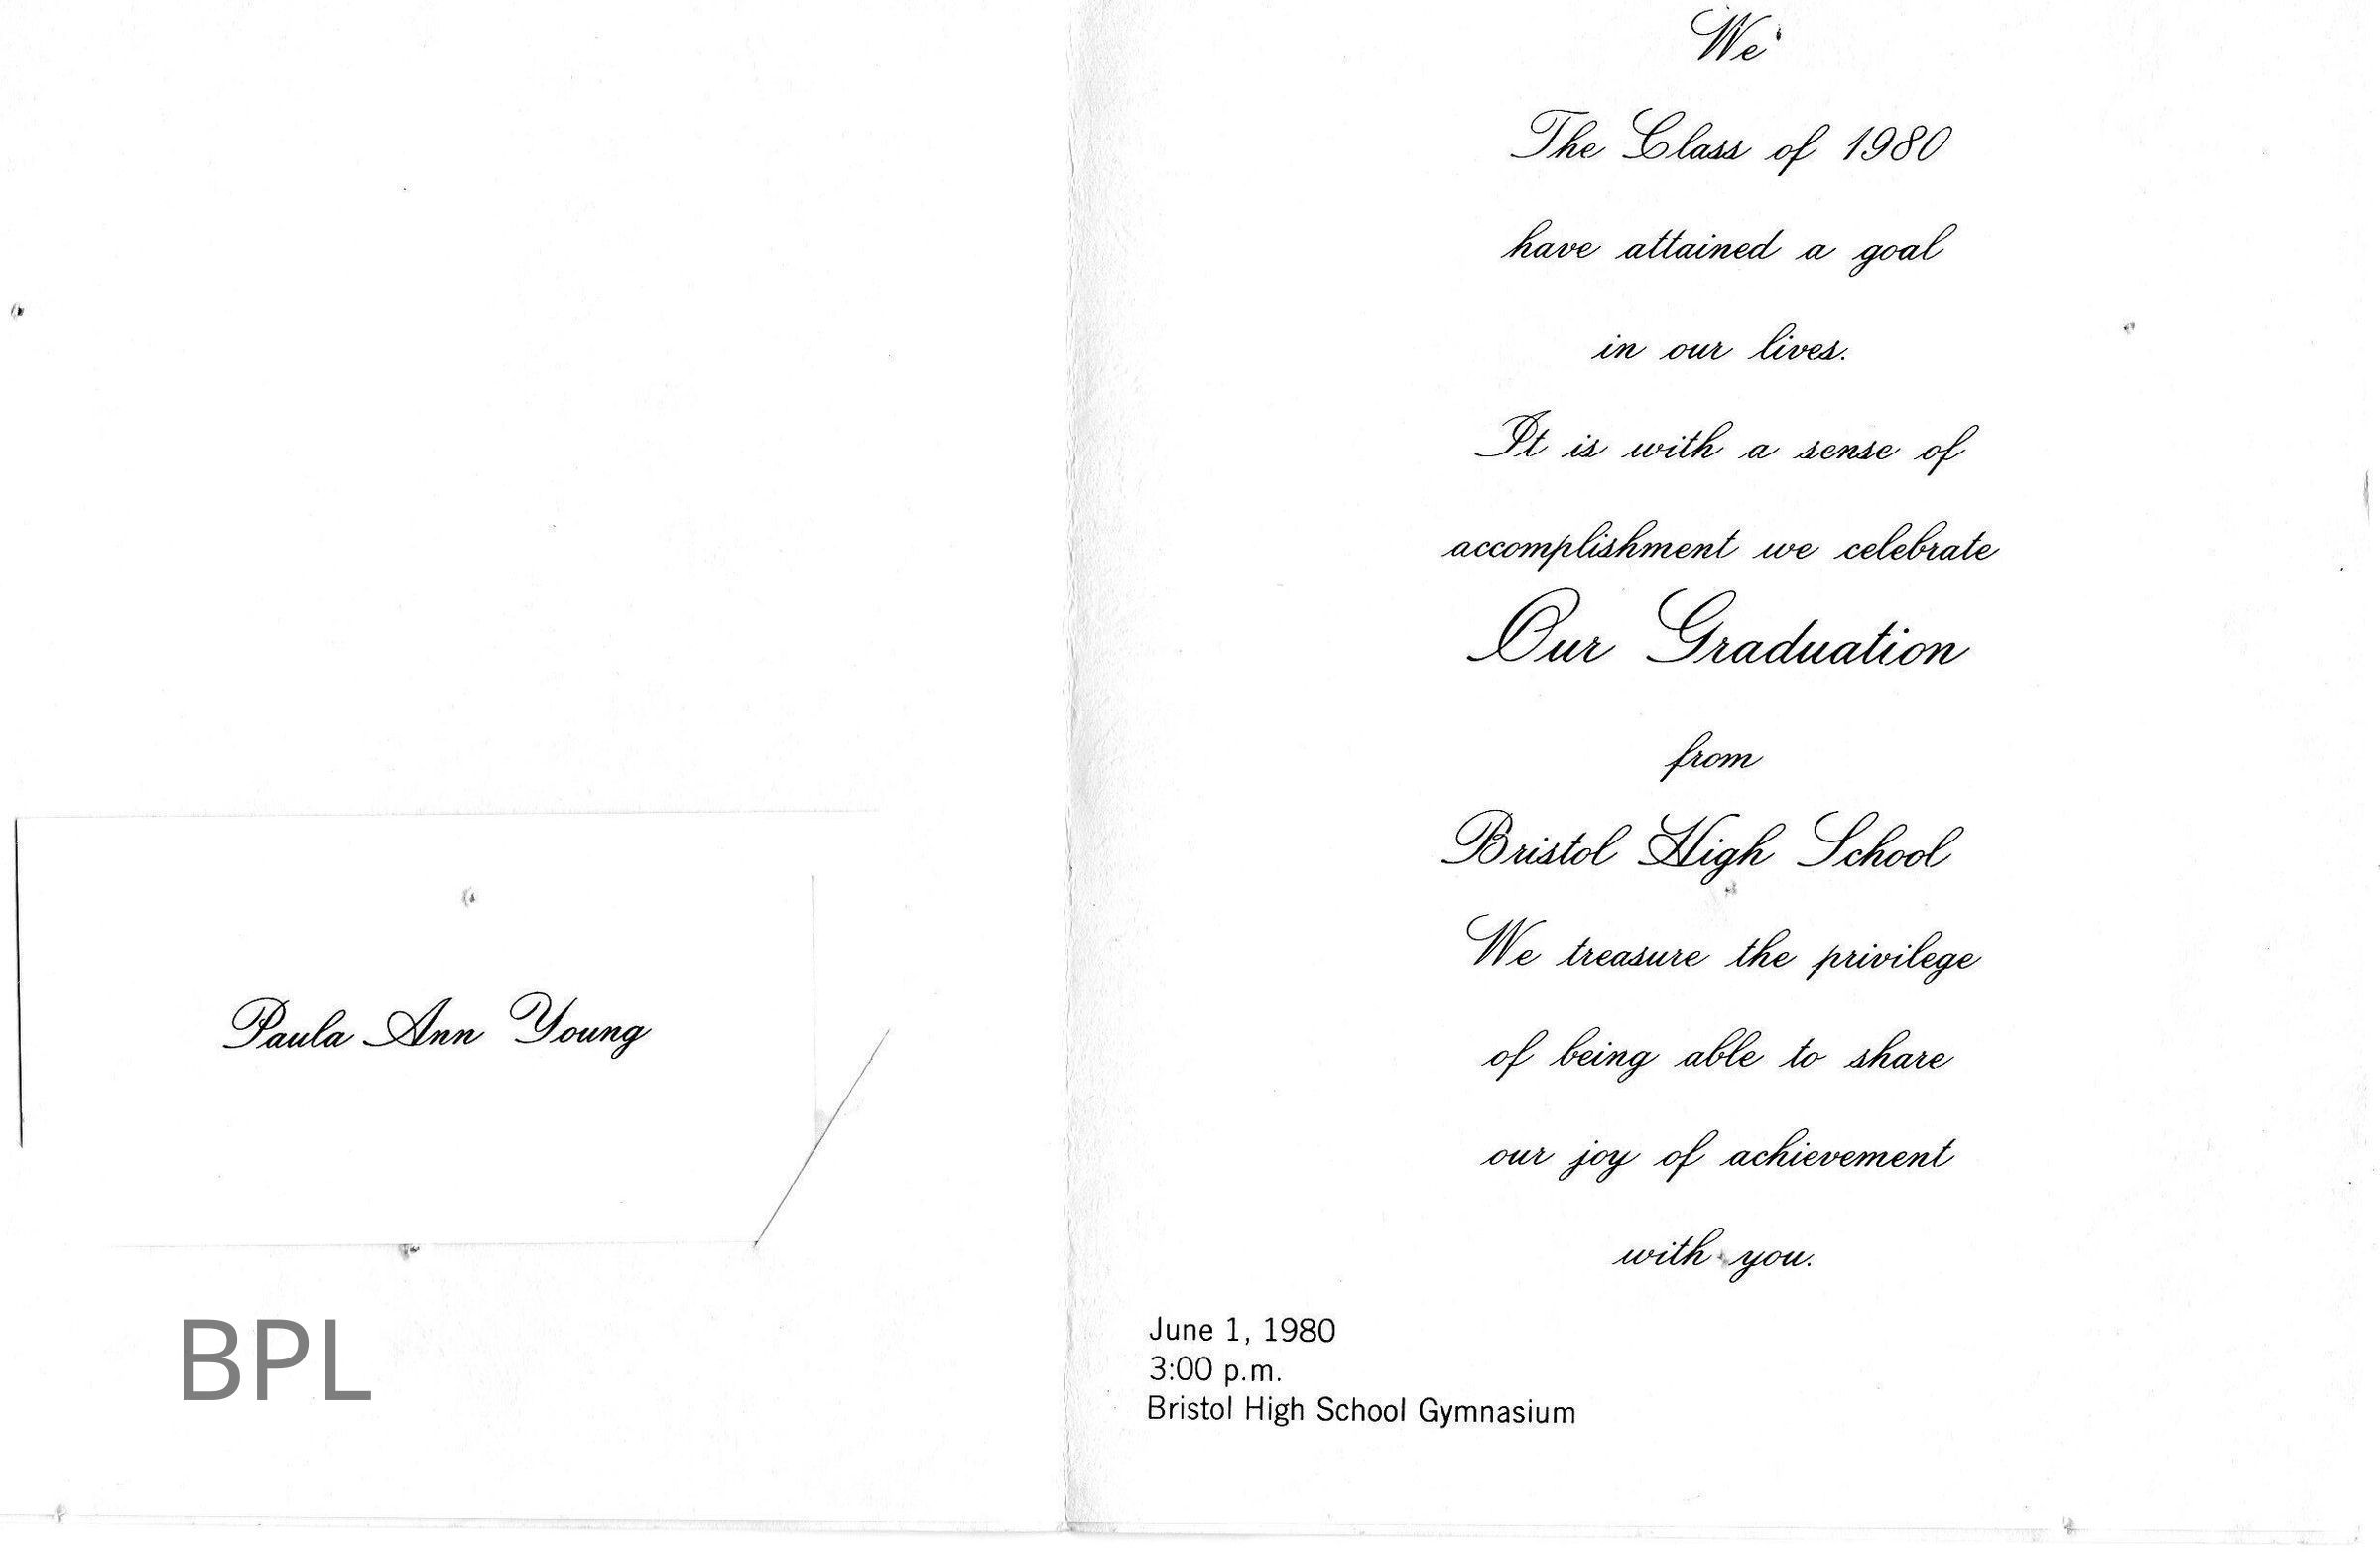 Paula Ann Young
BPL
We
The Class of 1980
have attained a goal
in our lives.
It is with a sense of
accomplishment we celebrate
Our Graduation
from
Bristol High School
We treasure the privilege
of being able to share
our joy of achievement
with you.
June 1, 1980
3:00 p.m.
Bristol High School Gymnasium